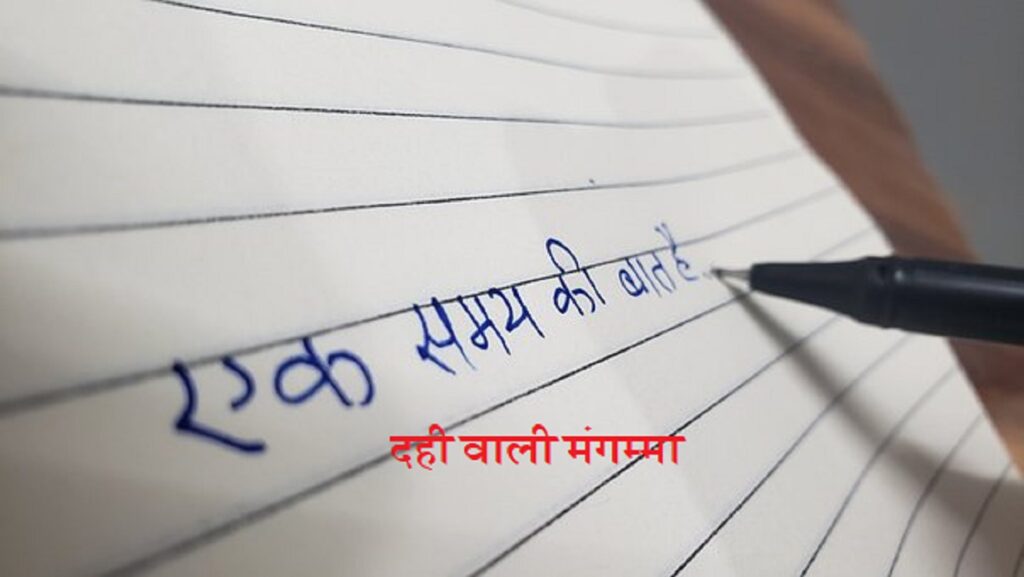 एक समय की बात है..
दही वाली मंगम्मा